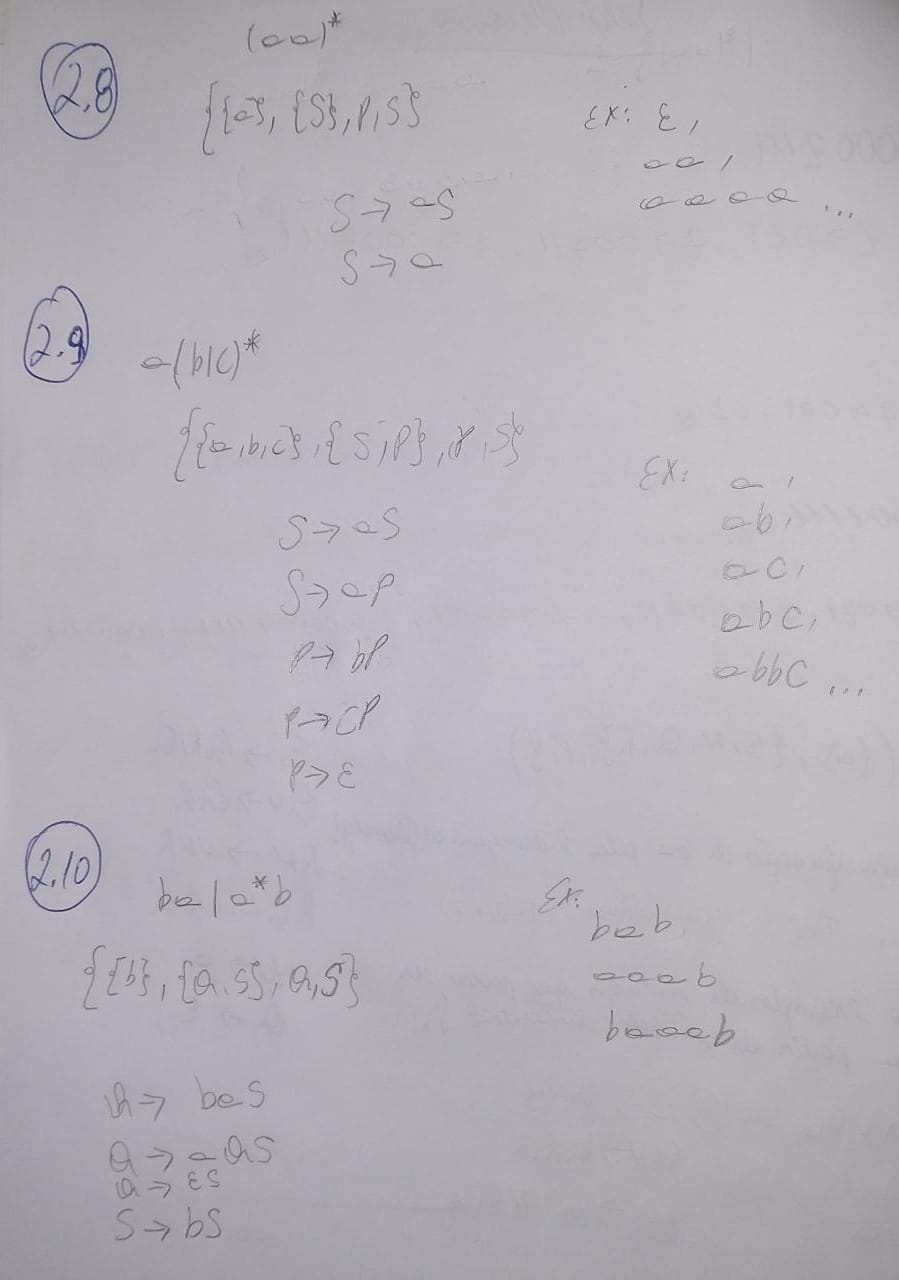 2.8
(aa)*
{{a}, {S}, P, S}
S → aS
S → a
Ex: ε,
aa,
aaaa ...
2.9
a(b|c)*
{{a,b,c}, {S,P}, γ, S}
S → aS
S → aP
P → bP
P → CP
P → ε
Ex: a,
ab,
ac,
abc,
abbc ...
2.10
ba|a*b
{{b}, {Q,S}, Q, S}
Q → baS
Q → aQS
Q → εS
S → bS
Ex:
bab
aaab
baaab